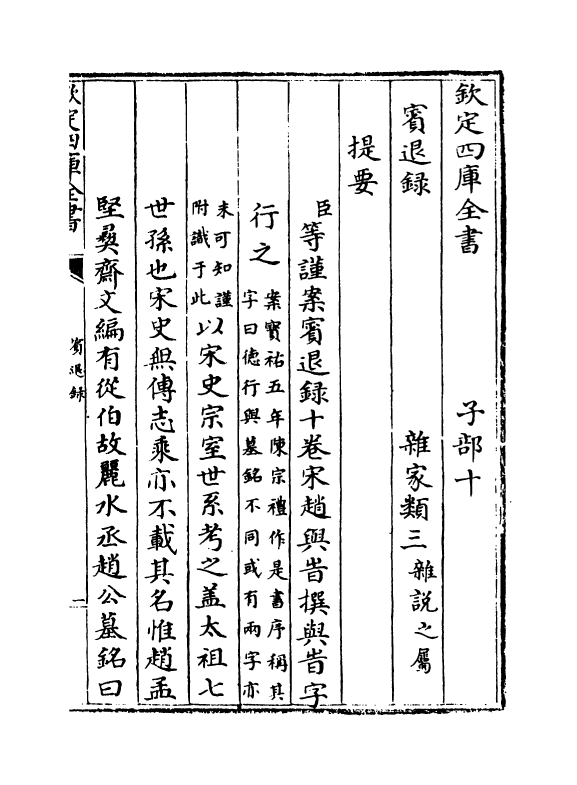 欽定四庫全書　子部十
賓退錄　雜家類三雜說之屬
提要
臣等謹案賓退錄十卷宋趙與旹撰與旹字
行之案寶祐五年陳宗禮作是書序稱其
字曰德行與墓銘不同或有兩字亦
未可知謹
附識于此以宋史宗室世系考之蓋太祖七
世孫也宋史無傳志乘亦不載其名惟趙孟
堅彝齋文編有從伯故麗水丞趙公墓銘曰
欽定四庫全書
賓退錄
一